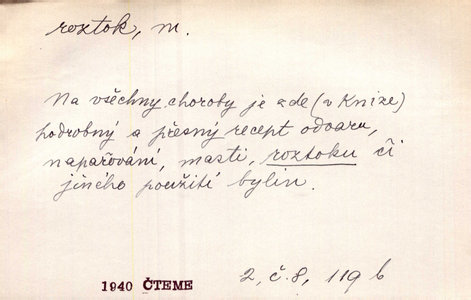 roztok, m.
Na všechny choroby je zde (v Knize)
podrobný a přesný recept odvaru,
napařování, masti, roztoku či
jiného použití bylin.
1940 ČTEME
2, č. 8, 119 b